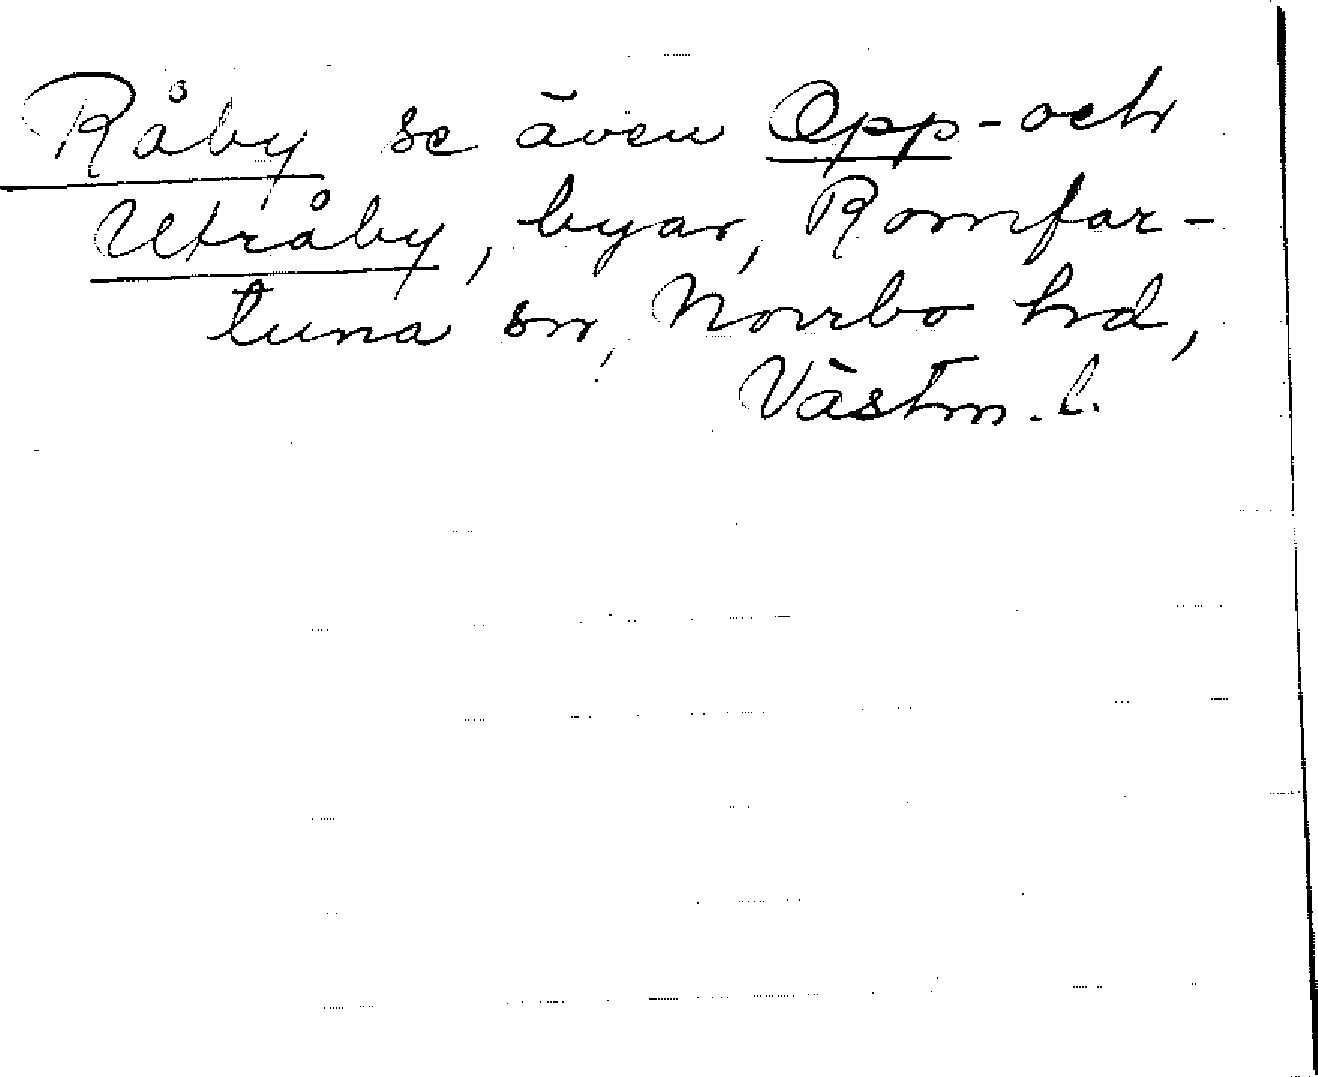 Råby se även Opp- och
Utråby, byar, Romfar-
tuna sn, Norrbo hd,
Västm. l.